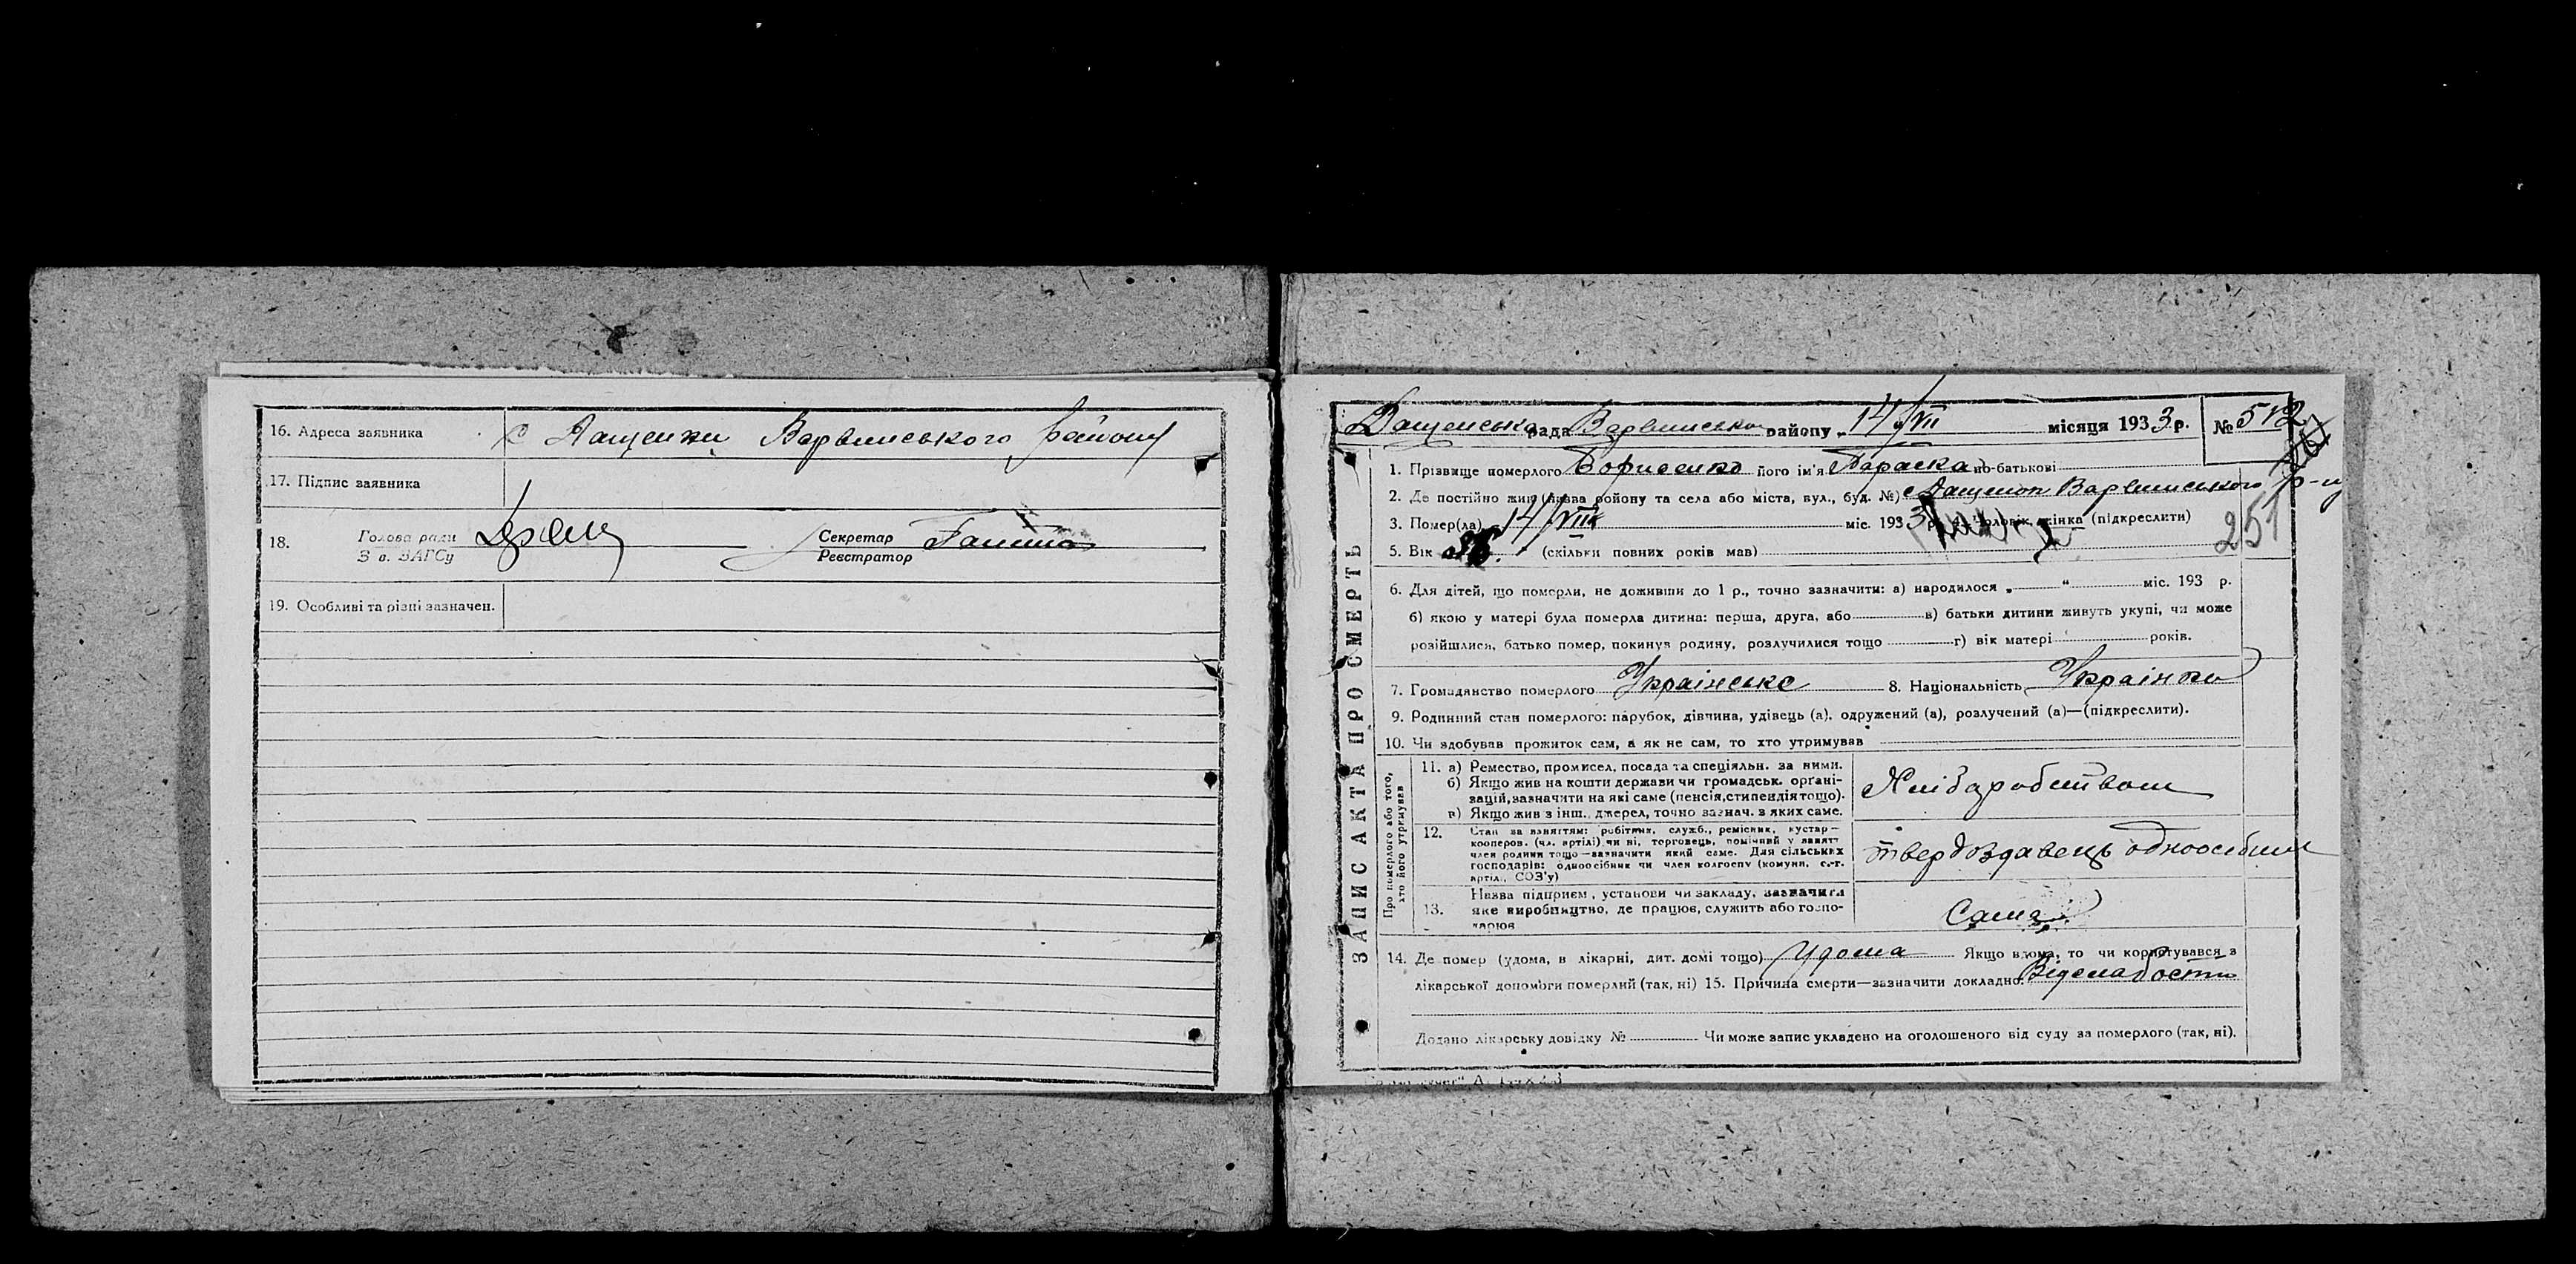 16. Адреса заявника с Лащенки Варвинського району
17. Підпис заявника
18. Голова ради Секретар
З в. ЗАГСу Реєстратор
19. Особливі та різні зазначен.
ЗАПИС АКТА ПРО СМЕРТЬ
рада Варвинсько району „14/VII місяця 1933 р. №
1. Прізвище померлого Борисенко його ім'я Параска по-батькові
2. Де постійно жив (назва району та села або міста, вул., буд. №) с Варвинського р-ну
3. Помер(ла) 14/VII міс. 1933 р. 4. Чоловік, жінка (підкреслити)
251
5. Вік (скільки повних років мав)
6. Для дітей, що померли, не доживши до 1 р., точно зазначити: а) народилося „ “ міс. 193 р.
б) якою у матері була померла дитина: перша, друга, або в) батьки дитини живуть укупі, чи може
розійшлися, батько помер, покинув родину, розлучилися тощо г) вік матері років.
7. Громадянство померлого Українське 8. Національність Українка
9. Родинний стан померлого: парубок, дівчина, удівець (а), одружений (а), розлучений (а)—(підкреслити).
10. Чи здобував прожиток сам, а як не сам, то хто утримував
Про померлого або того,
хто його утримував
11. а) Ремество, промисел, посада та спеціяльн. за ними.
б) Якщо жив на кошти держави чи громадськ. орґані-
зацій, зазначити на які саме (пенсія, стипендія тощо).
в) Якщо жив з інш. джерел, точно зазнач. з яких саме.
Хліборобством
12. Стан за заняттям: робітник, служб., ремісник, кустар—
кооперов. (чл. артілі) чи ні, торговець, помічний у занятт
член родини тощо—зазначити який саме. Для сільських
господарів: одноосібник чи член колгоспу (комуни, с.-г.
артіл., СОЗ'у)
твердоздавець одноосібник
13. Назва підприєм., установи чи закладу, зазначити
яке виробництво, де працюв, служить або госпо-
дарюв
Сама
14. Де помер (удома, в лікарні, дит. домі тощо) Удома Якщо вдома, то чи користувався з
лікарської допомоги померлий (так, ні) 15. Причина смерти—зазначити докладно: Від слабости
Додано лікарську довідку № Чи може запис укладено на оголошеного від суду за померлого (так, ні).